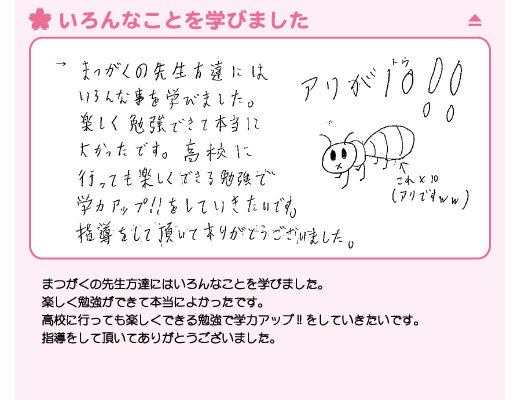 いろんなことを学びました
まつがくの先生方達には
いろんな事を学びました。
楽しく勉強できて本当に
よかったです。高校に
行っても楽しくできる勉強で
学力アップ!!をしていきたいです。
指導をして頂いてありがとうございました。
アリが10!!
トウ
これ×10
(アリですww)
まつがくの先生方達にはいろんなことを学びました。
楽しく勉強ができて本当によかったです。
高校に行っても楽しくできる勉強で学力アップ!!をしていきたいです。
指導をして頂いてありがとうございました。